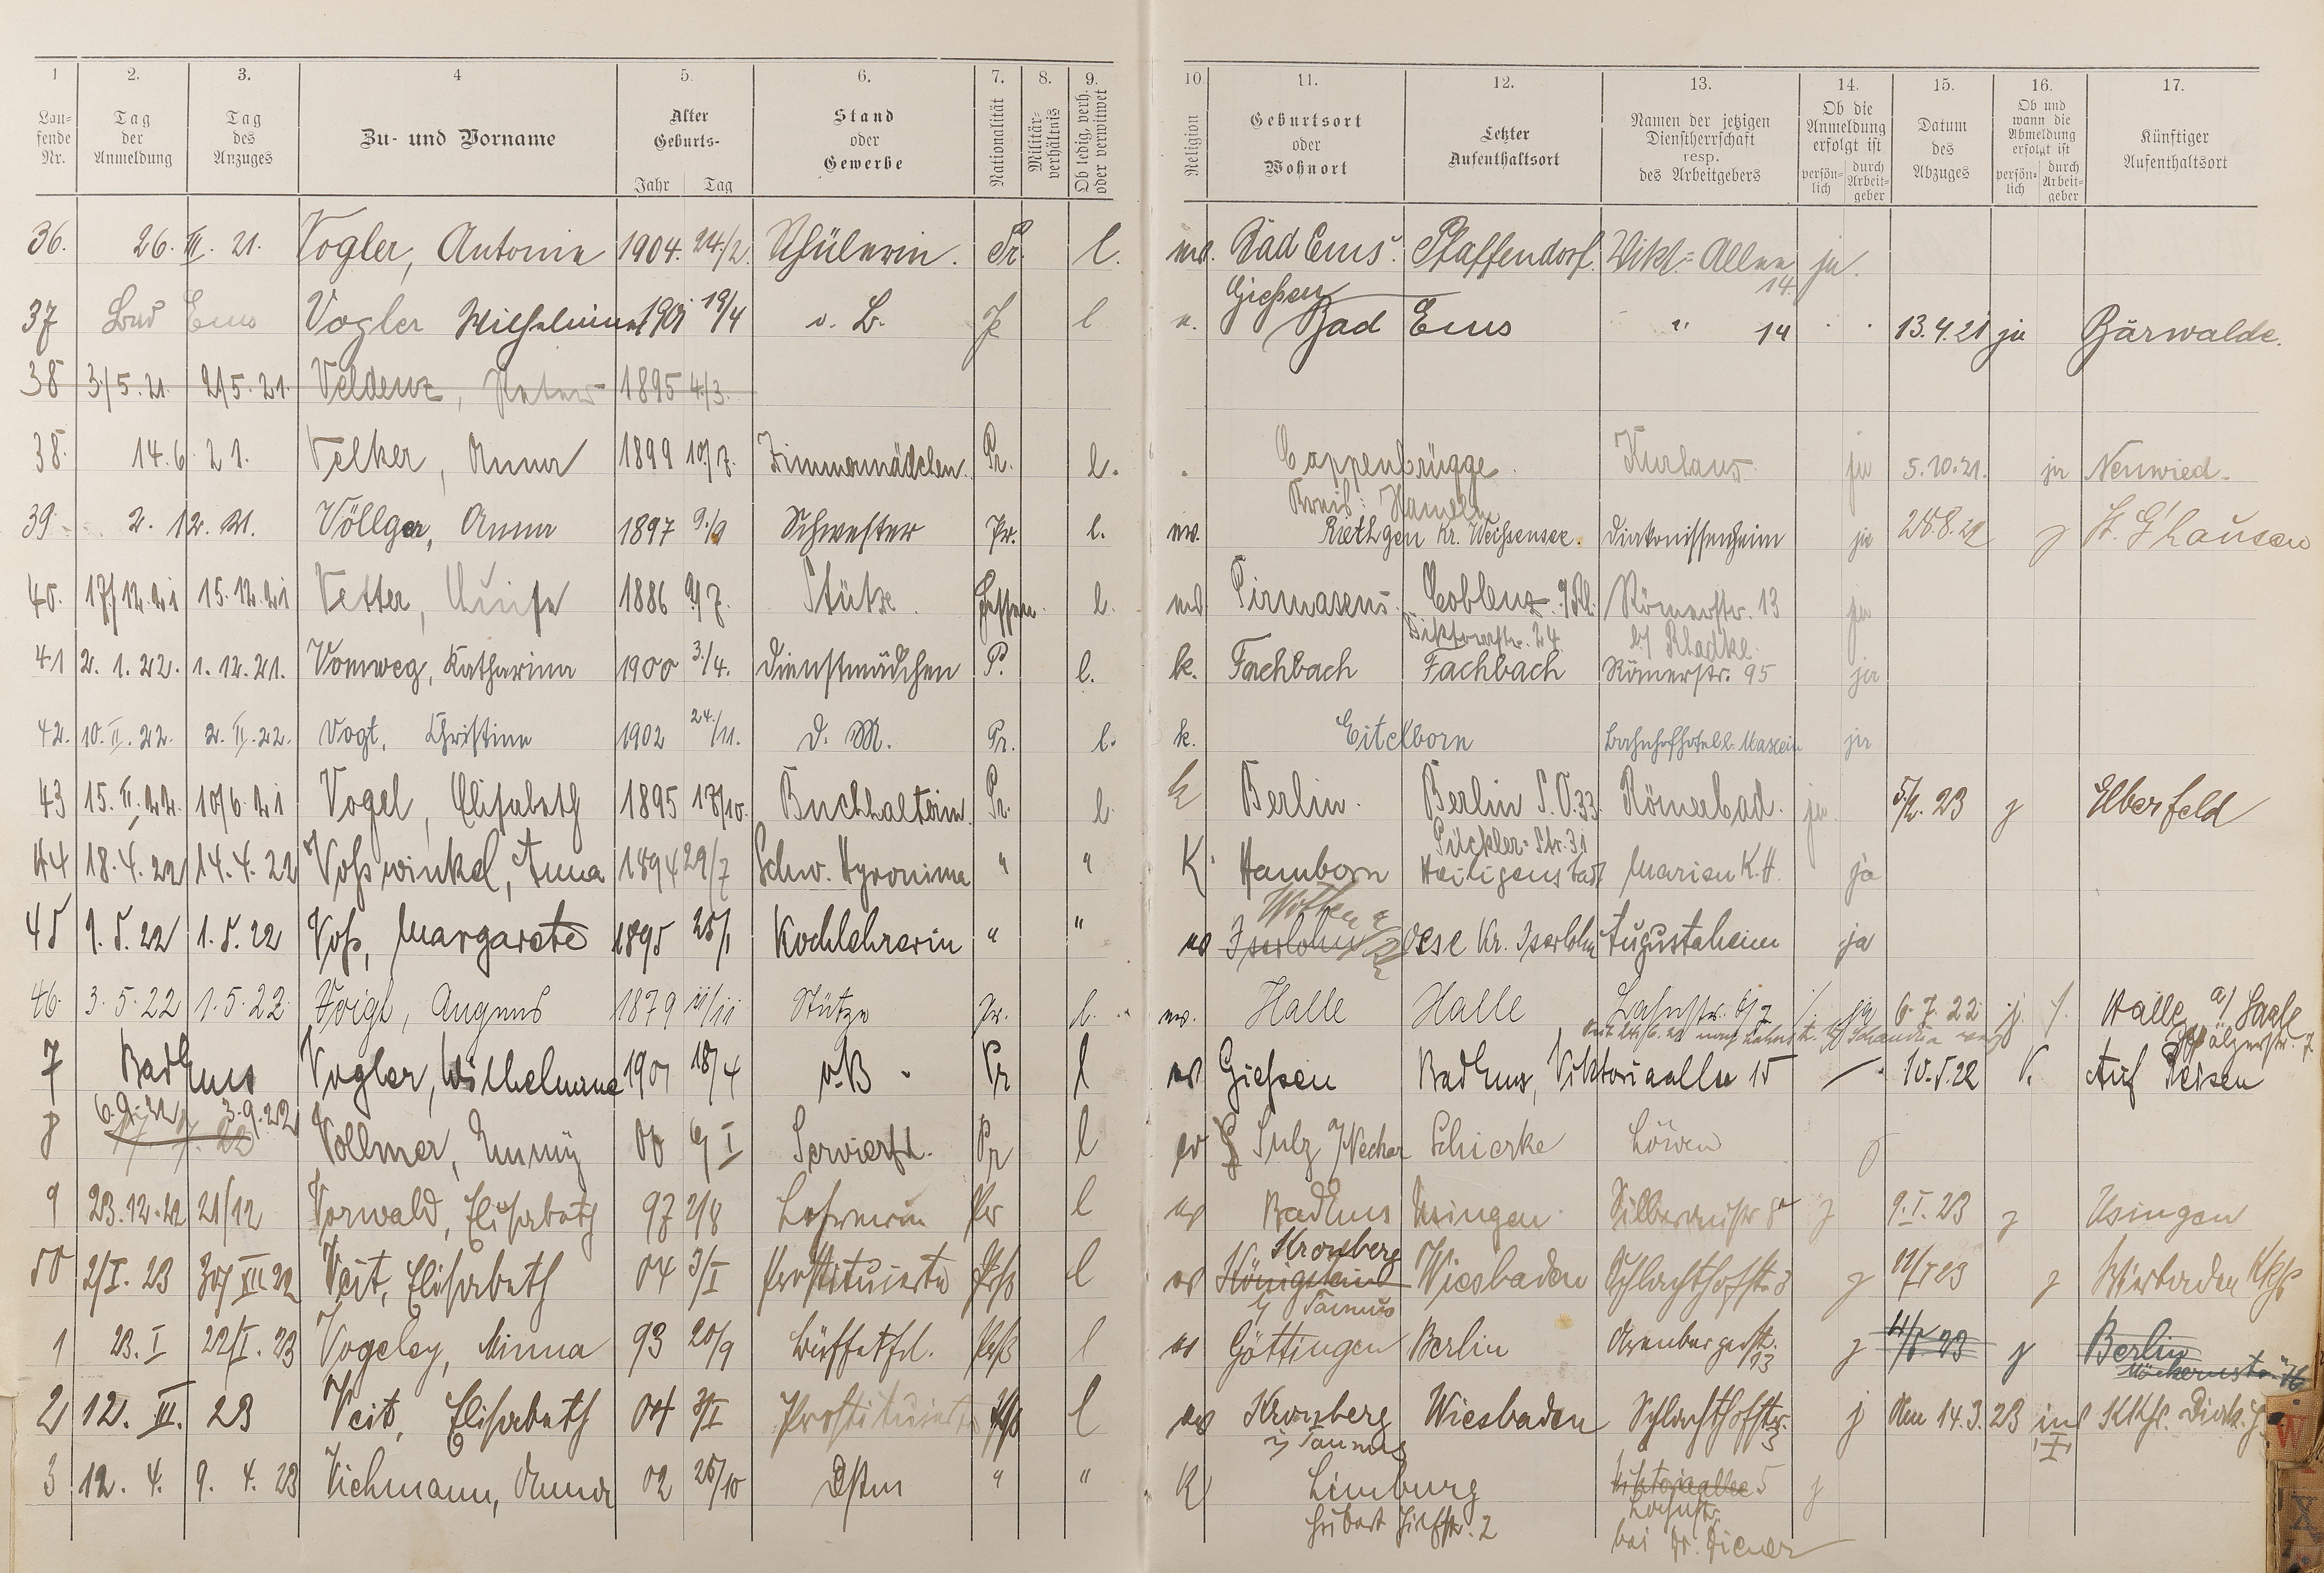 1 2. 3. 4 5. 6. 7. 8. 9. 10 11. 12. 13. 14. 15. 16. 17.
Lau-
fende
Nr.
Tag
der
Anmeldung
Tag
des
Anzuges
Zu- und Vorname
Alter
Geburts-
Jahr Tag
Stand
oder
Gewerbe
Nationalität
Militär-
verhältnis
Ob ledig, verh.
oder verwitwet
Religion
Geburtsort
oder
Wohnort
Letzter
Aufenthaltsort
Namen der jetzigen
Dienstherrschaft
resp.
des Arbeitgebers
Ob die
Anmeldung
erfolgt ist
persön-
lich
durch
Arbeit-
geber
Datum
des
Abzuges
Ob und
wann die
Abmeldung
erfolgt ist
persön-
lich
durch
Arbeit-
geber
Künftiger
Aufenthaltsort
36. 26. III. 21. Vogler, Antonie 1904. 24./2. Schülerin. Pr. l. ev. Bad Ems. Pfaffendorf. Vikt-Allee 14. ja.
37 Bad Ems Vogler Wilhelmine 1901 19/4 o. B. P l e. Gießen Bad Ems " 14 13.4.21 ja Bärwalde.
38 3/5.21. 2/5.21. Veldenz, Peter 1895 4./3.
38. 14.6.21. Velker, Anna 1899 10/7. Zimmermädchen. Pr. l. Coppenbrügge Kreis: Hameln Kurhaus ja 5.10.21. ja Neuwied.
39 2. 12. 21. Völlger, Anna 1897 9./9 Schwester Pr. l. ev. Riethgen Kr. Weißensee. Diakonissenheim ja 28.8.22 j St. G'hausen
40. 17/12.21 15.12.21 Vetter, Luise 1886 9/7. Stütze. Hessen. l. ev Pirmasens. Coblenz a/Rh. Römerstr. 13 ja
Viktoriastr. 24 b/ Kladke.
41 2. 1. 22. 1. 12. 21. Vomweg, Katharina 1900 3./4. Dienstmädchen P. l. k. Fachbach Fachbach Römerstr. 95 ja
42. 10. II. 22. 2. II. 22. Vogt, Christine 1902 24./11. D. M. Pr. l. k. Eitelborn Bahnhofhotel ja
43 15. II. 22. 10/6.21 Vogel, Elisabeth 1895 17/10. Buchhalterin. Pr. l. k Berlin. Berlin S.O.33. Römerbad. ja. 5/2. 23 j Elberfeld
Pückler-Str. 31
44 18.4.22 14.4.22 Voßwinkel, Anna 1894 29/7 Schw. Hyronima " " K. Hamborn Heiligenstadt Marien K.H. ja
45 1.5.22 1.5.22 Voß, Margarete 1895 25/1 Kochlehrerin " " ev Iserlohn Oese Kr. Iserlohn Augustaheim ja
46. 3.5.22 1.5.22 Voigt, Agnes 1879 11/11 Stütze Pr. l. ev. Halle Halle Lahnstr. 6/7 ja 6.7.22 j. Halle a/ Saale
7 Bad Ems Vogler, Wilhelmine 1901 18/4 o.B. Pr l ev Gießen Bad Ems, Viktoriaallee 15 10.5.22 Auf Reisen
8 6.9.22 3.9.22 Vollmer, Emmy 00 6/I Servierfl. Pr l ev Sulz a/Neckar Schierke Löwen
9 23.12.22 21/12 Vorwald, Elisabeth 97 2/8 Lehrerin Pr l ev Bad Ems Usingen Silberaustr j 9.I.23 j Usingen
50 2/I.23 30/XII.22 Veit, Elisabeth 04 3/I Prostituierte Prß l ev Königstein Kronberg i/ Taunus Wiesbaden Schlachthofstr. 3 j j Wiesbaden
1 23. I 22/I.23 Vogeley, Minna 93 20/9 Büffetfrl. Prß l ev Göttingen Berlin 13 j j Berlin
2 12. III. 23 Veit, Elisabeth 04 3/I Prostituierte Prß l ev Kronberg i/ Taunus Wiesbaden Schlachthofstr. 3 j Am 14.3.23 ins
3 12. 4. 9. 4. 23 Viehmann, Anna 02 25/10 " " K Limburg Viktoriaallee 5 j
2 Lahnstr.
bei Dr. Diener